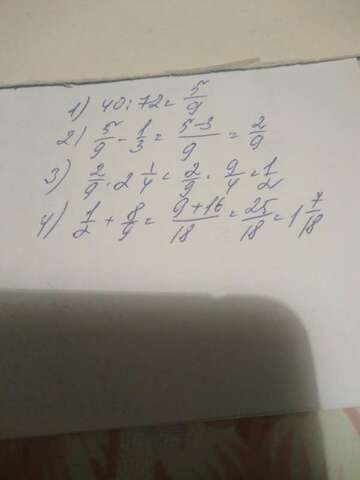 1) 40:72=5/9
2) 5/9-1/3=5-3/9=2/9
3) 2/9·2 1/4=2/9·9/4=1/2
4) 1/2+8/9=9+16/18=25/18=1 7/18